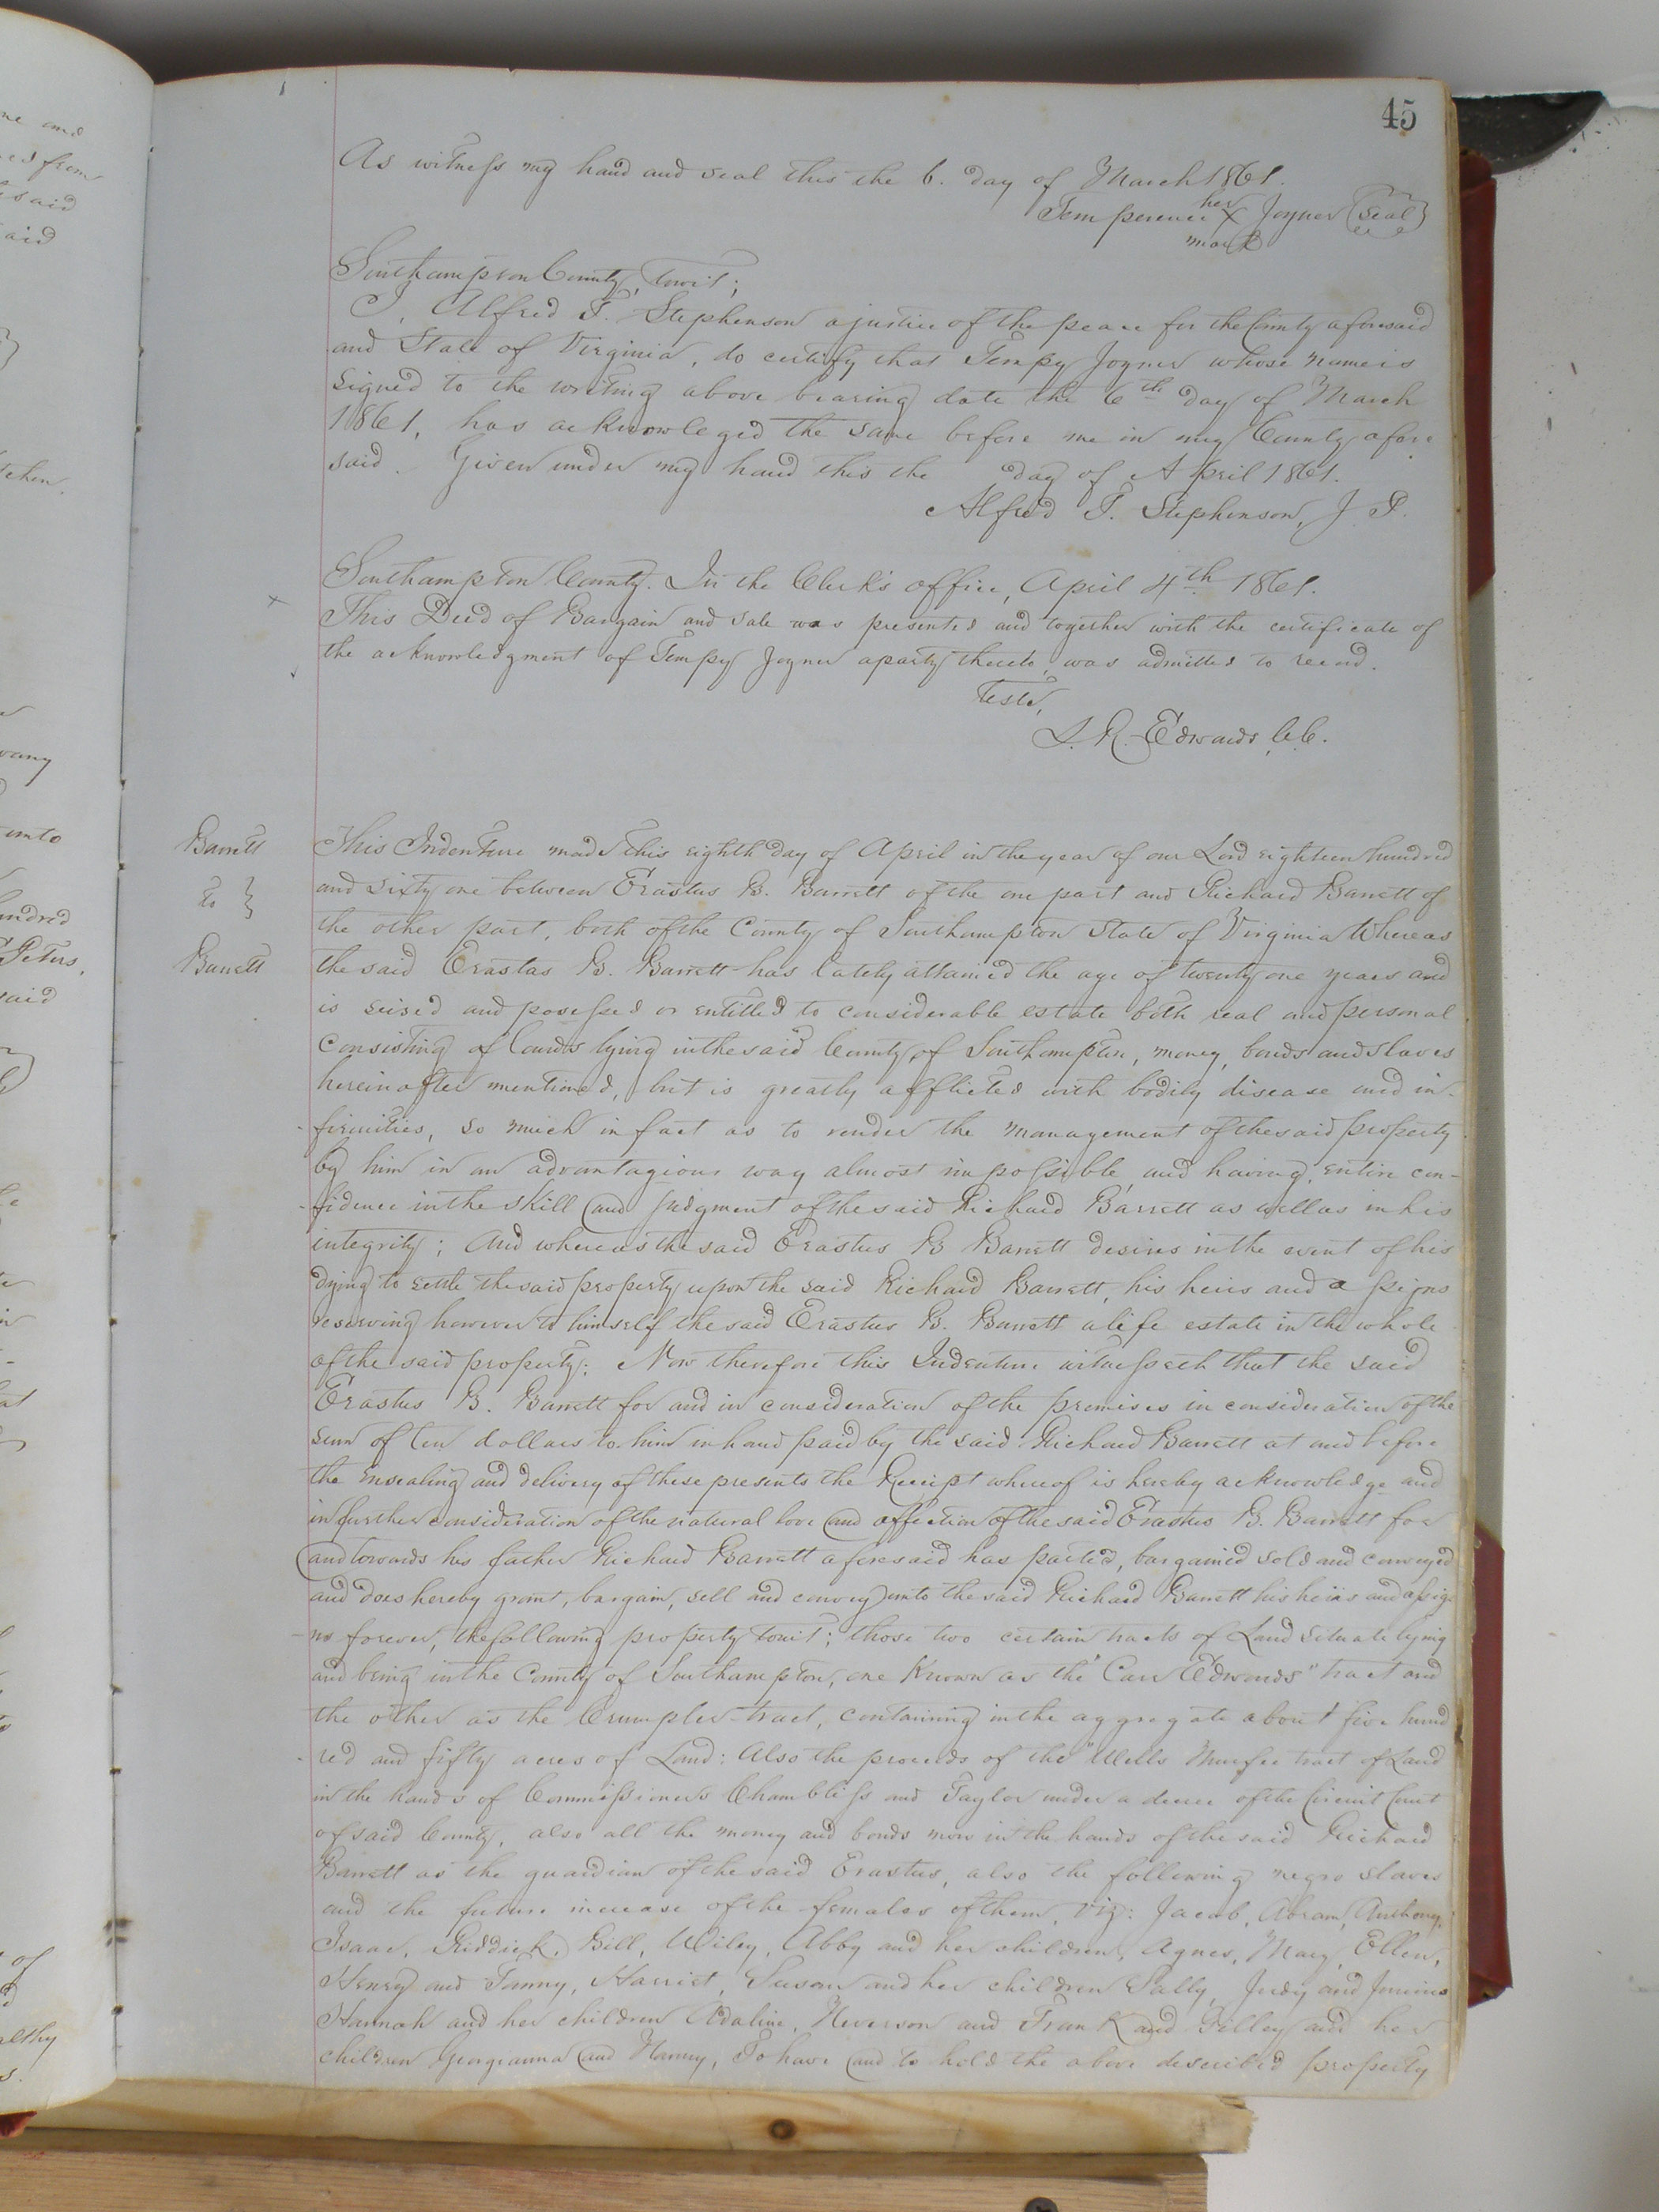 45
As witness my hand and seal this the 6. day of March 1861.
her
Temperence X Joyner (Seal)
mark
Southampton County, towit;
I, Alfred T. Stephenson a justice of the peace for the County aforesaid
and State of Virginia, do certify that Tempy Joyner whose name is
signed to the writing above bearing date the 6th day of March
1861, has acknowleged the same before me in my County afore
said. Given under my hand this the day of April 1861.
Alfred T. Stephenson, J. P.
Southampton County. In the Clerk's office, April 4th 1861.
This Deed of Bargain and Sale was presented and together with the certificate of
the acknowledgment of Tempy Joyner a party thereto, was admitted to record.
Teste,
L. R. Edwards, C.C.
Barrett
to }
Barrett
This Indenture made this eighth day of April in the year of our Lord eighteen hundred
and sixty one between Erastus B. Barrett of the one part and Richard Barrett of
the other part, both of the County of Southampton State of Virginia Whereas
the said Erastus B. Barrett has lately attained the age of twenty one years and
is seised and possessed or entitled to considerable estate both real and personal
consisting of lands lying in the said County of Southampton, money, bonds and slaves
hereinafter mentioned, but is greatly afflicted with bodily disease and in-
-firmities, so much in fact as to render the management of the said property
by him in an advantagious way almost impossible, and having entire con-
-fidence in the skill and judgment of the said Richard Barrett as well as in his
integrity; And whereas the said Erastus B Barrett desires in the event of his
dying to settle the said property upon the said Richard Barrett, his heirs and assigns
reserving however to himself the said Erastus B. Barrett a life estate in the whole
of the said property: Now therefore this Indenture witnesseth that the said
Erastus B. Barrett for and in consideration of the premises in consideration of the
sum of ten dollars to him in hand paid by the said Richard Barrett at and before
the ensealing and delivery of these presents the Receipt whereof is hereby acknowledge and
in further consideration of the natural love and affection of the said Erastus B. Barrett for
and towards his father Richard Barrett aforesaid has parted, bargained sold and conveyed
and does hereby grant, bargain, sell and convey unto the said Richard Barrett his heirs and assig
-ns forever, the following property towit; those two certain tracts of Land situate lying
and being in the County of Southampton, one known as the "Carr Edwards" tract and
the other as the Crumpler tract, containing in the aggregate about five hund
-red and fifty acres of Land: Also the proceeds of the "Wells Murfee tract of Land
in the hands of Commissioners Chambliss and Taylor under a decree of the Circuit Court
of said County, also all the money and bonds now in the hands of the said Richard
Barrett as the guardian of the said Erastus, also the following negro slaves
and the future increase of the females of them, viz: Jacob, Abram, Anthony,
Isaac, Riddick, Bill, Wiley, Abby and her children, Agnes, Mary, Ellen,
Henry and Fanny, Harriet, Susan and her children Sally, Judy and Junius
Hannah and her children Adaline, Neverson and Frank and Tilley and her
children Georgianna and Nanny, To have and to hold the above described property